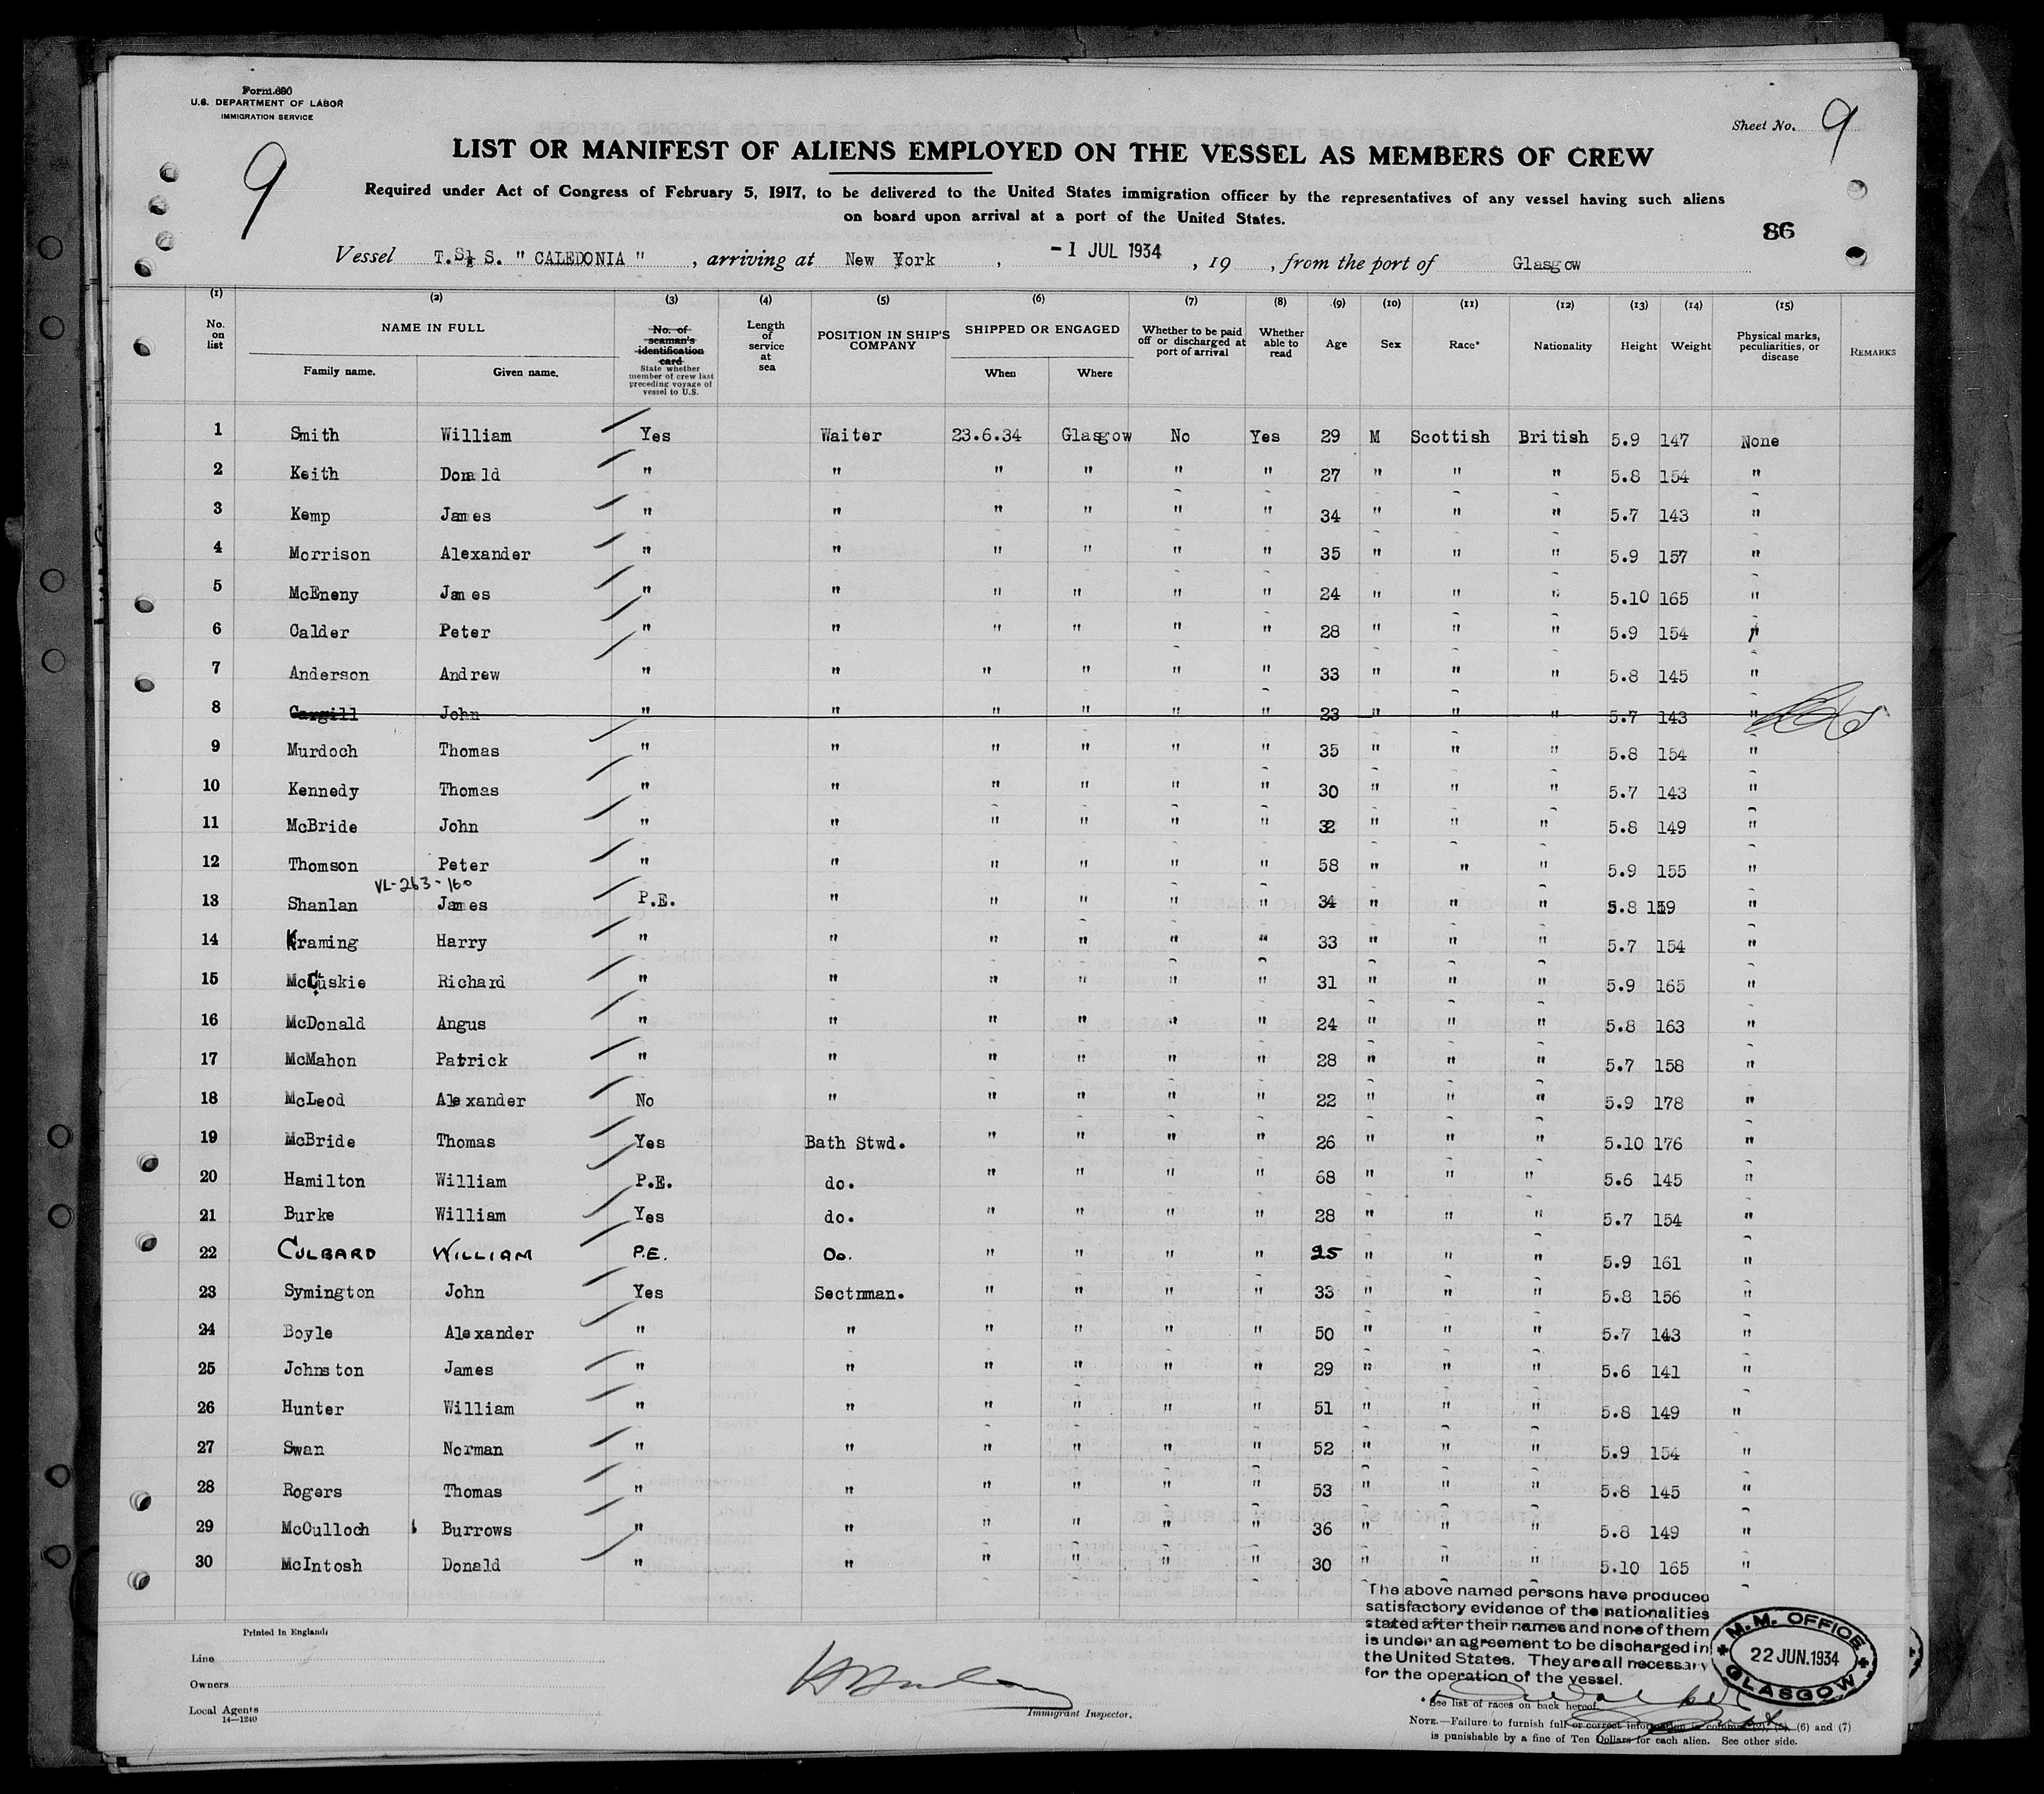 Form 690
U.S. DEPARTMENT OF LABOR
IMMIGRATION SERVICE
Sheet No. 9
9
LIST OR MANIFEST OF ALIENS EMPLOYED ON THE VESSEL AS MEMBERS OF CREW
Required under Act of Congress of February 5, 1917, to be delivered to the United States immigration officer by the representatives of any vessel having such aliens
on board upon arrival at a port of the United States.
86
Vessel T.S.S. " CALEDONIA " , arriving at New York , -1 JUL 1934 , 19 , from the port of Glasgow
(1) (2) (3) (4) (5) (6) (7) (8) (9) (10) (11) (12) (13) (14) (15)
No. on list
NAME IN FULL
Family name. Given name.
No. of seaman's identification card
State whether member of crew last preceding voyage of vessel to U.S.
Length of service at sea
POSITION IN SHIP'S COMPANY
SHIPPED OR ENGAGED
When Where
Whether to be paid off or discharged at port of arrival
Whether able to read
Age
Sex
Race*
Nationality
Height
Weight
Physical marks, peculiarities, or disease
REMARKS
1 Smith William Yes Waiter 23.6.34 Glasgow No Yes 29 M Scottish British 5.9 147 None
2 Keith Donald " " " " " " 27 " " " 5.8 154 "
3 Kemp James " " " " " " 34 " " " 5.7 143 "
4 Morrison Alexander " " " " " " 35 " " " 5.9 157 "
5 McEneny James " " " " " " 24 " " " 5.10 165 "
6 Calder Peter " " " " " " 28 " " " 5.9 154 "
7 Anderson Andrew " " " " " " 33 " " " 5.8 145 "
8 Cargill John " " " " " " 23 " " " 5.7 143 "
9 Murdoch Thomas " " " " " " 35 " " " 5.8 154 "
10 Kennedy Thomas " " " " " " 30 " " " 5.7 143 "
11 McBride John " " " " " " 32 " " " 5.8 149 "
12 Thomson Peter " " " " " " 58 " " " 5.9 155 "
VL-263-160
13 Shanlan James P.E. " " " " " 34 " " " 5.8 159 "
14 Kraming Harry " " " " " " 33 " " " 5.7 154 "
15 McCuskie Richard " " " " " " 31 " " " 5.9 165 "
16 McDonald Angus " " " " " " 24 " " " 5.8 163 "
17 McMahon Patrick " " " " " " 28 " " " 5.7 158 "
18 McLeod Alexander No " " " " " 22 " " " 5.9 178 "
19 McBride Thomas Yes Bath Stwd. " " " " 26 " " " 5.10 176 "
20 Hamilton William P.E. do. " " " " 68 " " " 5.6 145 "
21 Burke William Yes do. " " " " 28 " " " 5.7 154 "
22 CULBARD WILLIAM P.E. Do. " " " " 25 " " " 5.9 161 "
23 Symington John Yes Sectnman. " " " " 33 " " " 5.8 156 "
24 Boyle Alexander " " " " " " 50 " " " 5.7 143 "
25 Johnston James " " " " " " 29 " " " 5.6 141 "
26 Hunter William " " " " " " 51 " " " 5.8 149 "
27 Swan Norman " " " " " " 52 " " " 5.9 154 "
28 Rogers Thomas " " " " " " 53 " " " 5.8 145 "
29 McCulloch Burrows " " " " " " 36 " " " 5.8 149 "
30 McIntosh Donald " " " " " " 30 " " " 5.10 165 "
The above named persons have produced
satisfactory evidence of the nationalities
stated after their names and none of them
is under an agreement to be discharged in
the United States. They are all necessary
for the operation of the vessel.
M.M. OFFICE
22 JUN.1934
GLASGOW
Printed in England
Line
Owners
Local Agents
14—1240
Immigrant Inspector.
* See list of races on back hereof.
NOTE.—Failure to furnish full or correct information in columns (2), (5), (6) and (7)
is punishable by a fine of Ten Dollars for each alien. See other side.